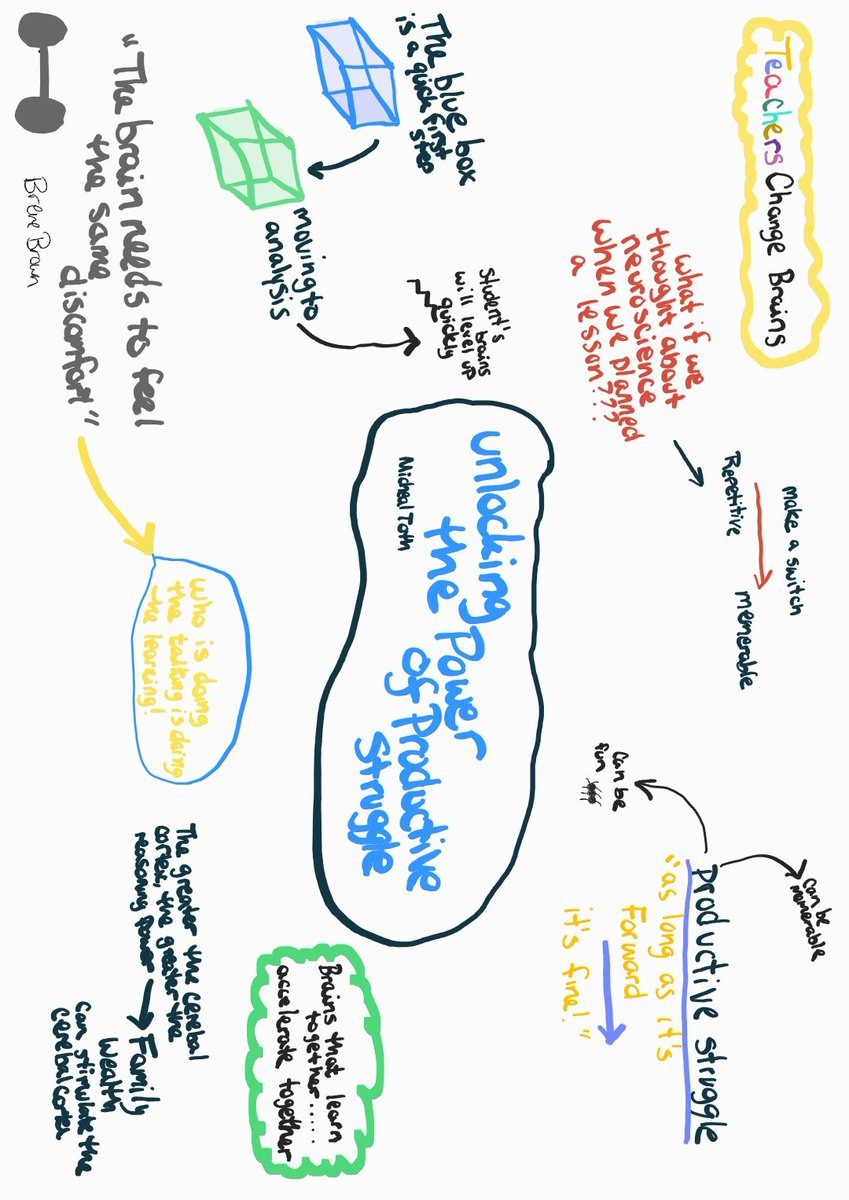 Teachers Change Brains
what if we
thought about
neuroscience
when we planned
a lesson???
make a switch
Repetitive
memerable
can be
memerable
can be
fun
productive struggle
"as long as it's
forward
it's fine!"
The blue box
is a quick first
step
moving to
analysis
Student's
brains
will level up
quickly
unlocking
the Power
of Productive
Struggle
Micheal Toth
"The brain needs to feel
the same
discomfort"
Brene Brown
Who is doing
the talking is doing
the learning!
The greater the cerebal
cortex, the greater the
reasoning power
Family
wealth
can stimulate the
cerebal cortex
Brains that learn
together......
accelerate together